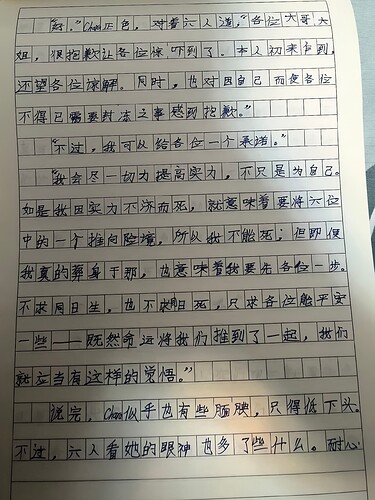 “好。”Chan正色，对着六人道，“各位大哥大
姐，很抱歉让各位惊吓到了。本人初来乍到，
还望各位谅解。同时，也对因自己而使各位
不得已需要封冻之事感到抱歉。”
“不过，我可以给各位一个承诺。”
“我会尽一切力提高实力，不只是为自己。
如是我因实力不济而死，就意味着要将六位
中的一个推向险境，所以我不能死；但即使
我真的葬身于那，也意味着我要先各位一步。
不求同日生，也不求同日死，只求各位能平安
一些——既然命运将我们推到了一起，我们
就应当有这样的觉悟。”
说完，Chan似乎也有些腼腆，只得低下头。
不过，六人看她的眼神也多了些什么。耐心